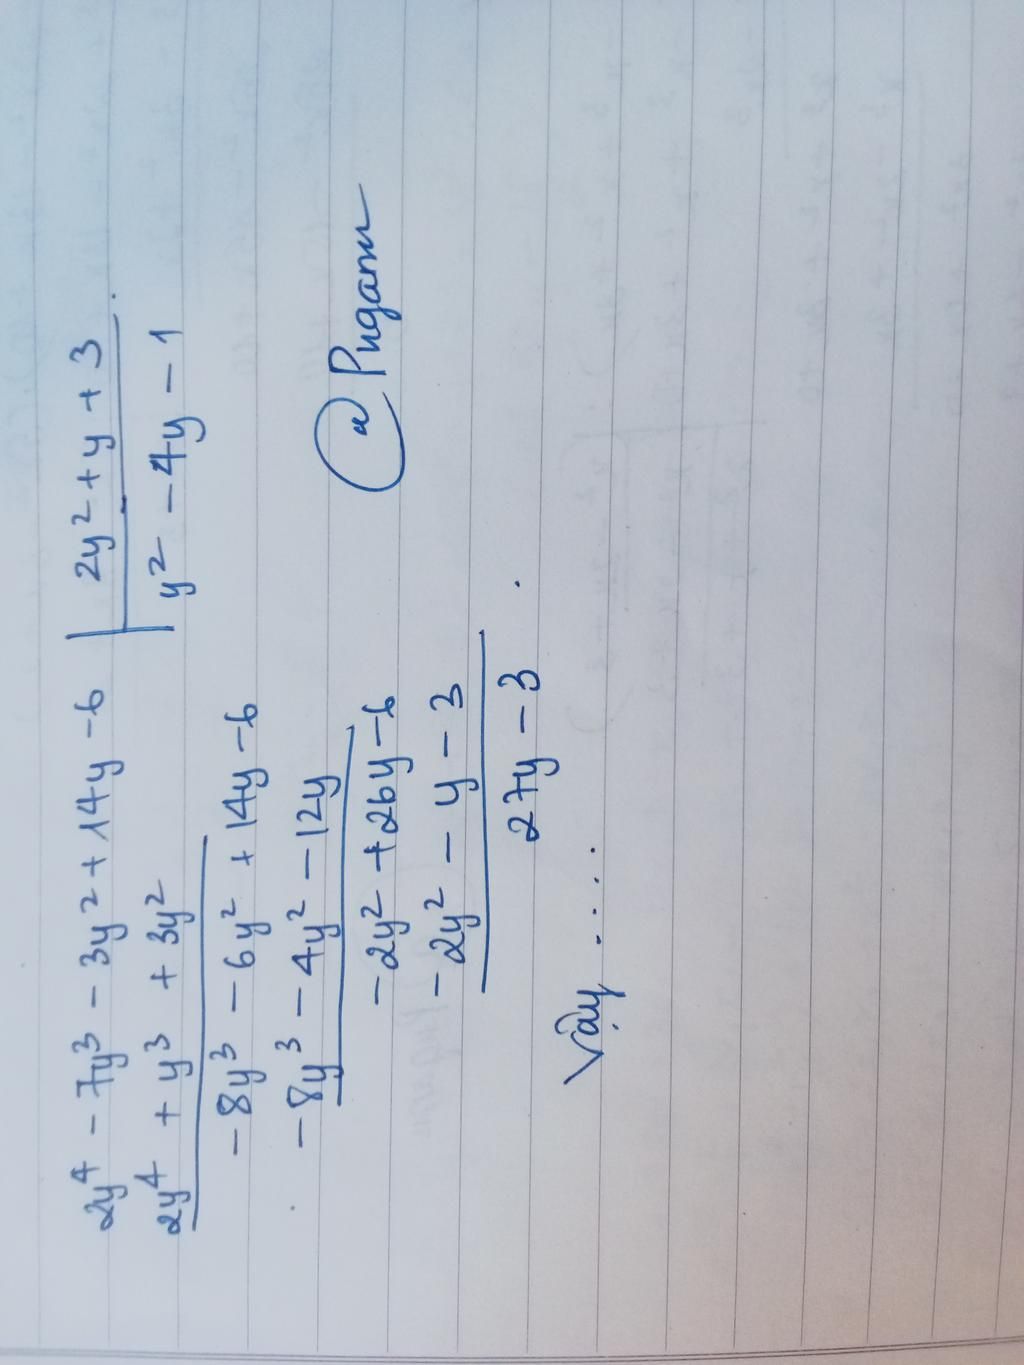 2y⁴ - 7y³ - 3y² + 14y - 6 | 2y² + y + 3
2y⁴ + y³ + 3y² y² - 4y - 1
- 8y³ - 6y² + 14y - 6
- 8y³ - 4y² - 12y
- 2y² + 26y - 6
- 2y² - y - 3
27y - 3
@Pngann
Vậy .....